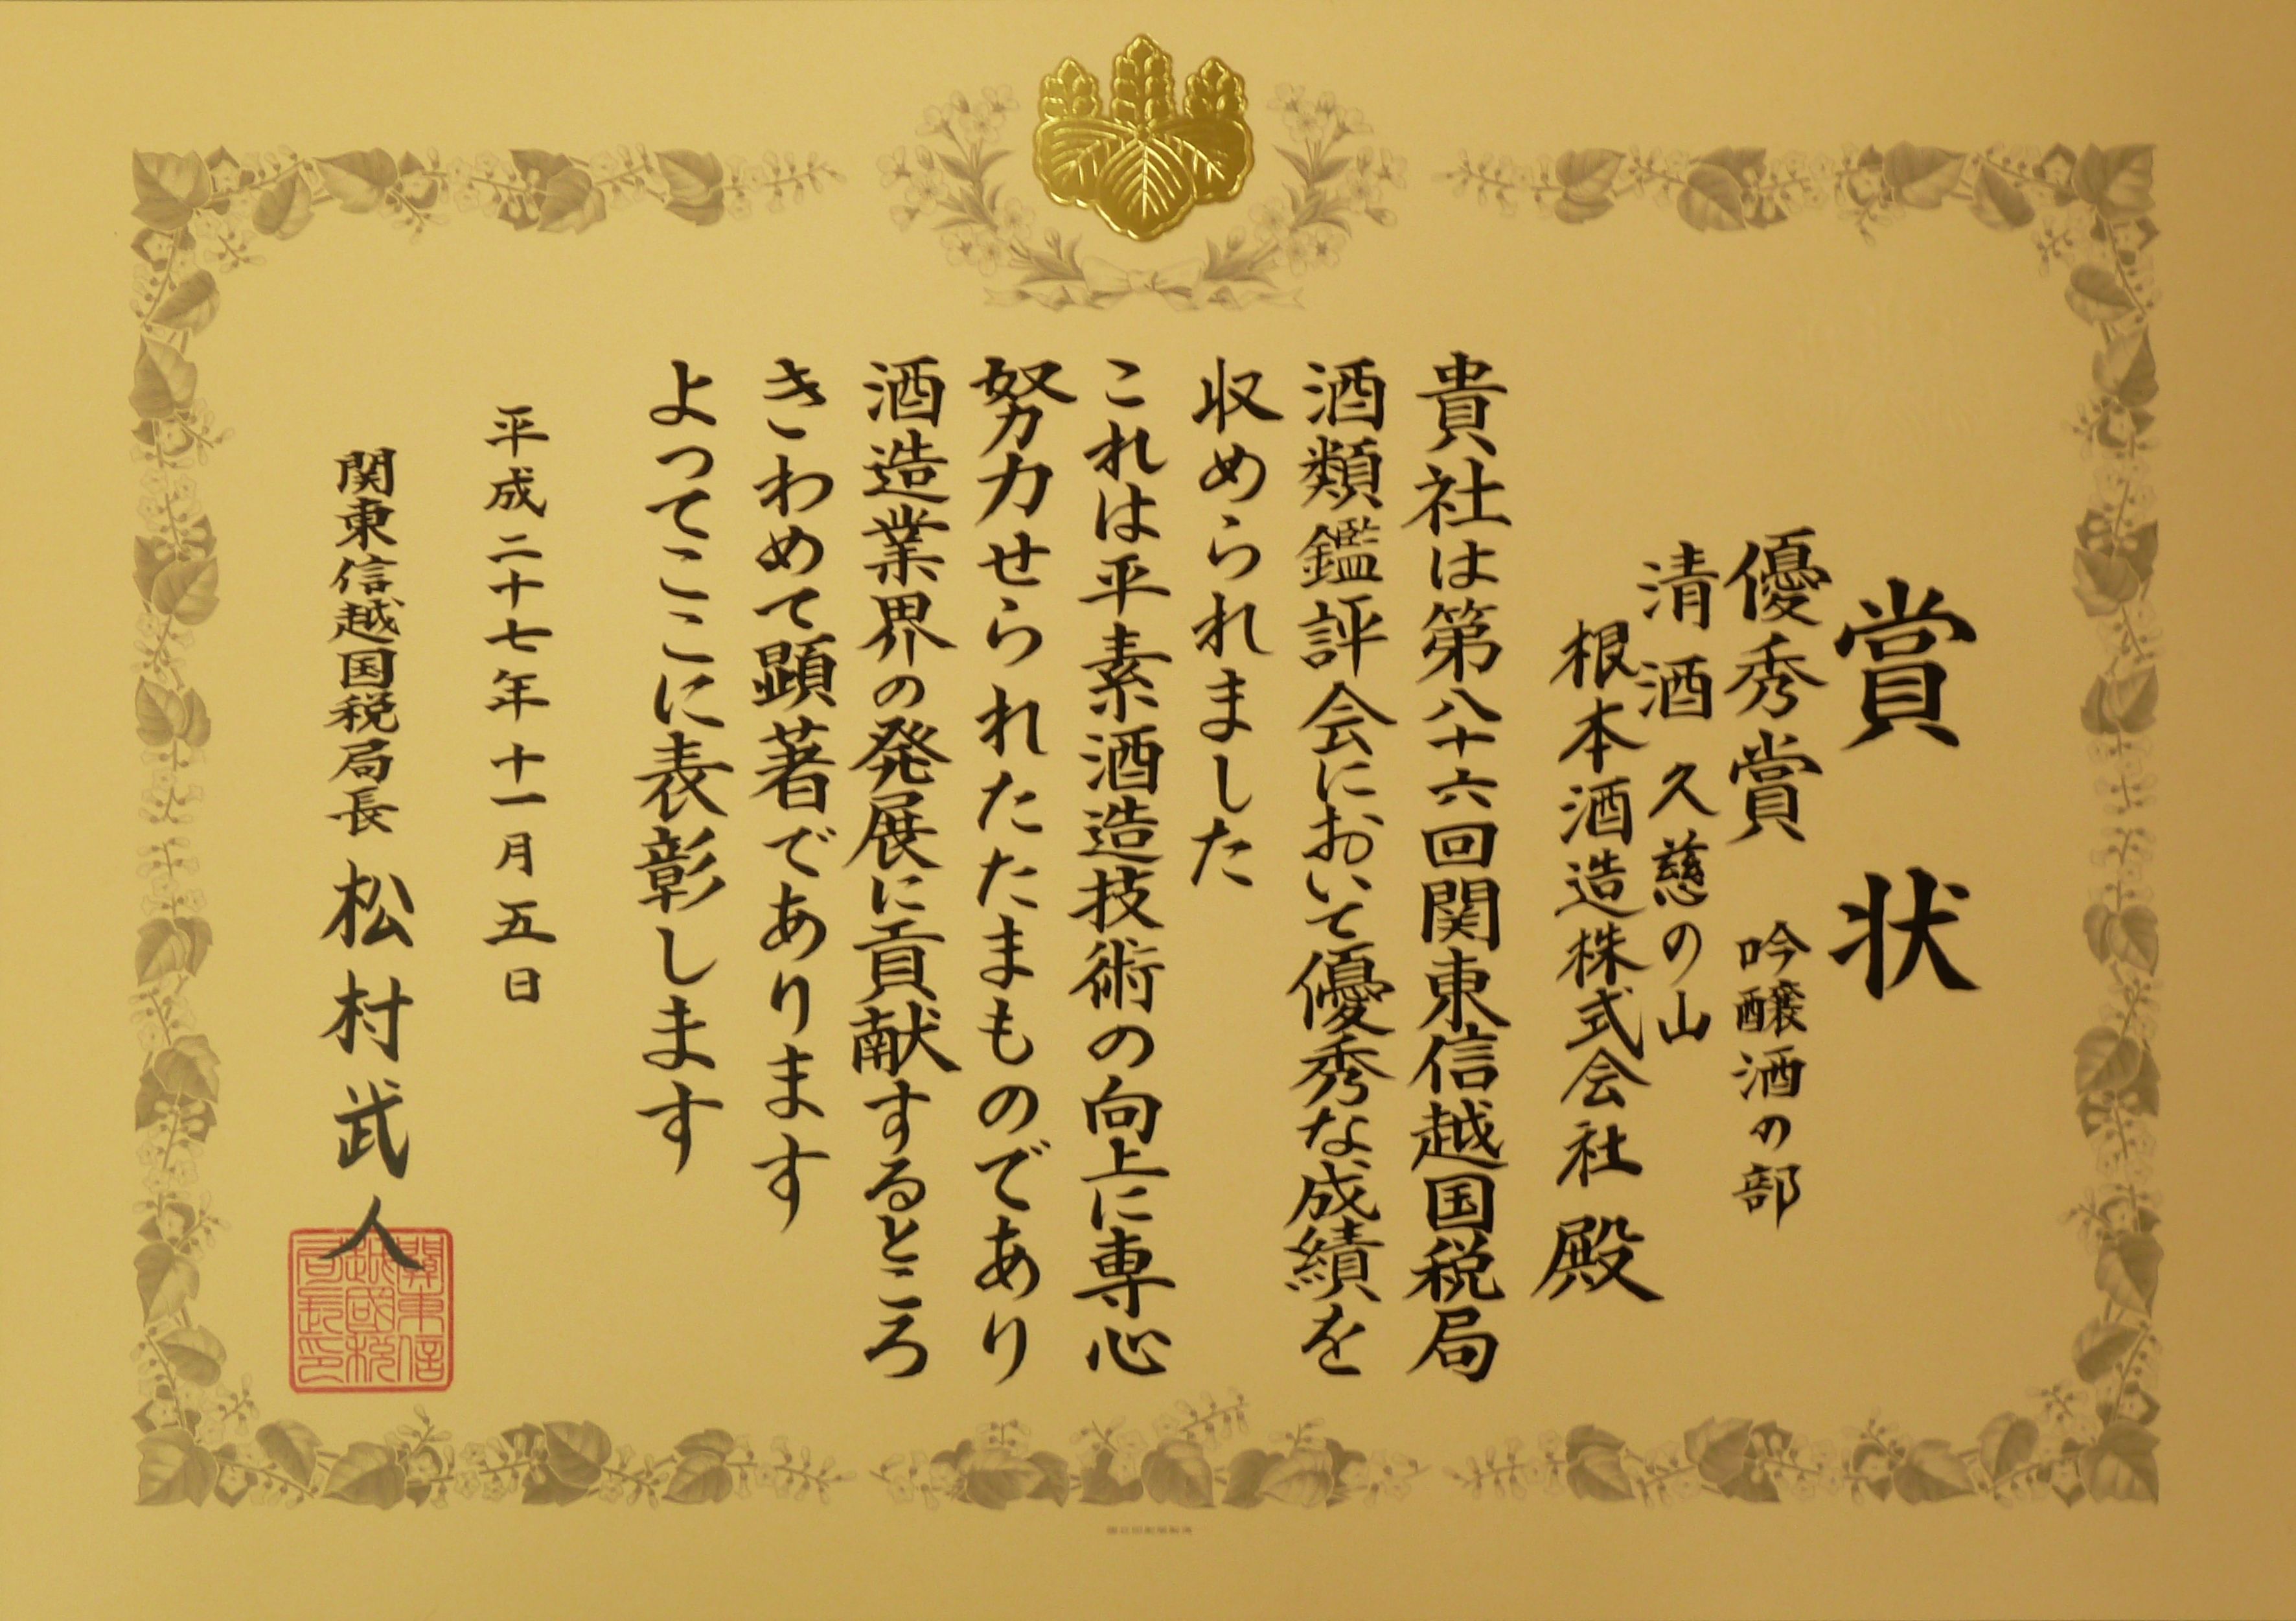 賞状
優秀賞 吟醸酒の部
清酒 久慈の山
根本酒造株式会社 殿
貴社は第八十六回関東信越国税局
酒類鑑評会において優秀な成績を
収められました
これは平素酒造技術の向上に専心
努力せられたたまものであり
酒造業界の発展に貢献するところ
きわめて顕著であります
よってここに表彰します
平成二十七年十一月五日
関東信越国税局長 松村武人
關東信越國税局長印